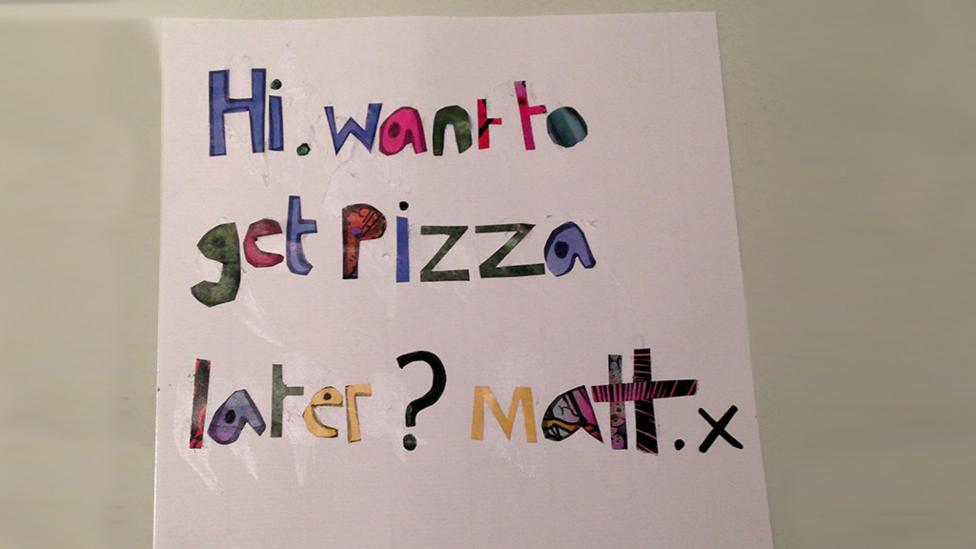 Hi. want to
get Pizza
later? Matt. x